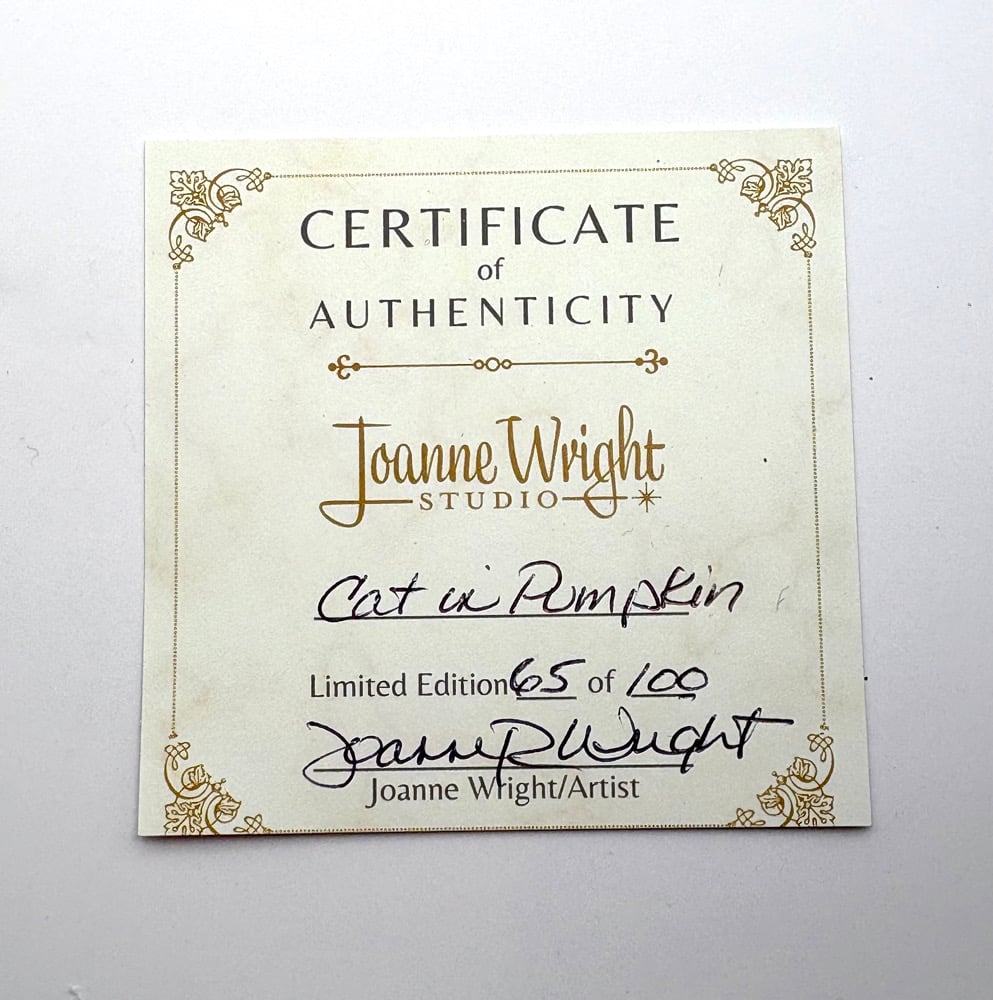 CERTIFICATE
of
AUTHENTICITY
Joanne Wright
STUDIO
Cat in Pumpkin
Limited Edition 65 of 100
Joanne P Wright
Joanne Wright/Artist